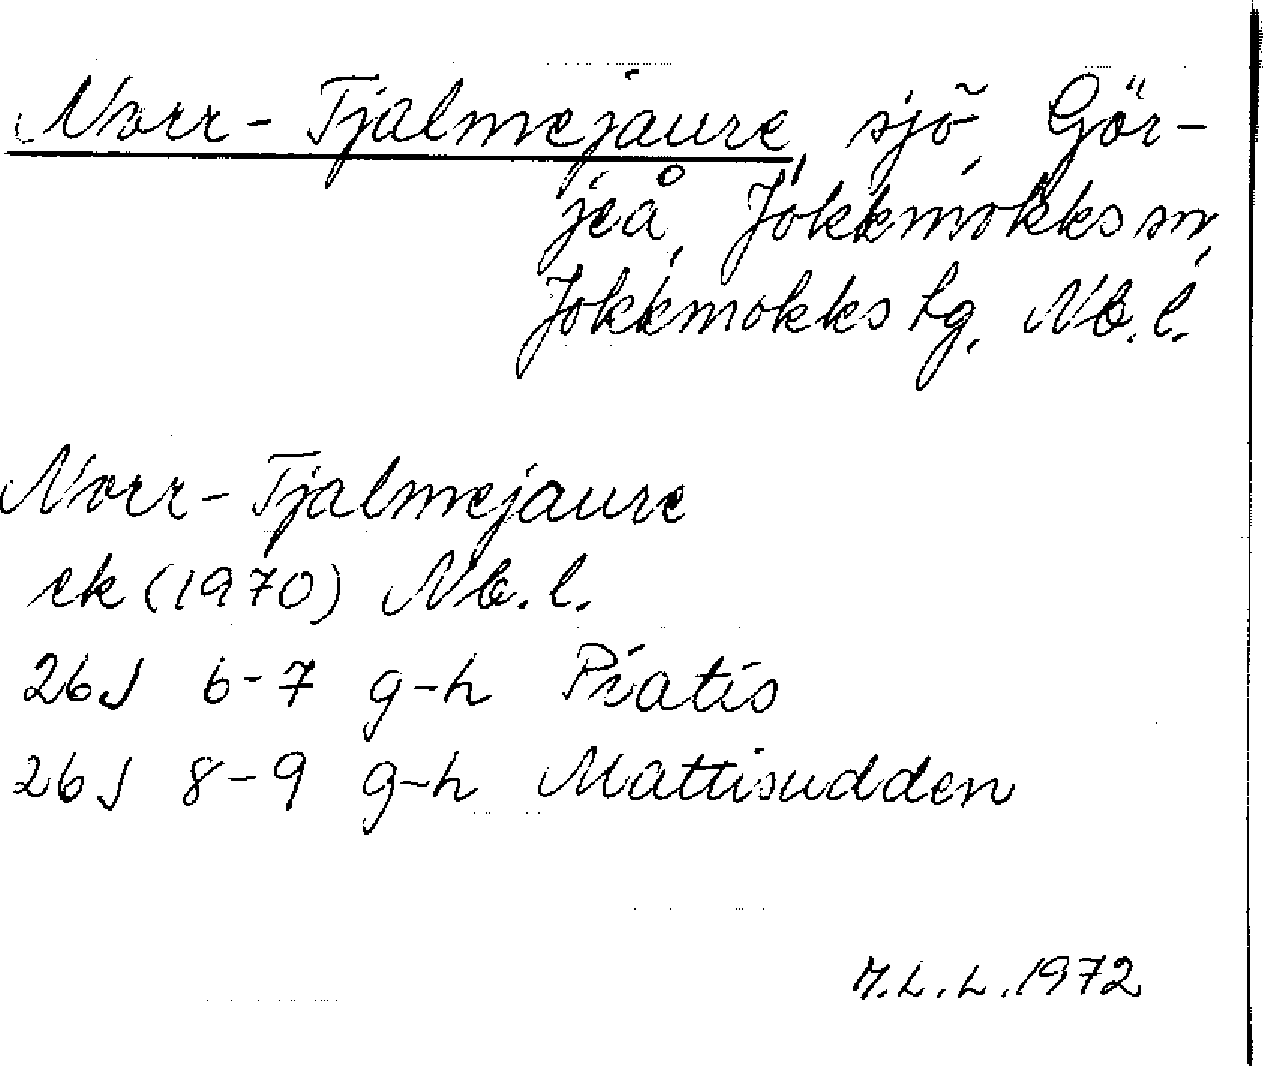 Norr-Tjalmejaure, sjö, Gör-
jeå, Jokkmokks sn,
Jokkmokks tg, Nb.l.
Norr-Tjalmejaure
ek (1970) Nb.l.
26J 6-7 g-h Piatis
26J 8-9 g-h Mattisudden
L.L. 1972